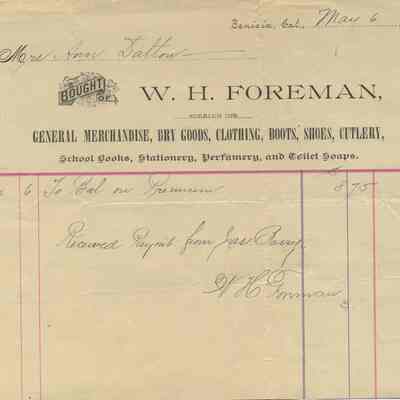 Benicia, Cal., May 6
Mrs Ann Dalton
BOUGHT OF W. H. FOREMAN,
DEALER IN
GENERAL MERCHANDISE, DRY GOODS, CLOTHING, BOOTS, SHOES, CUTLERY,
School Books, Stationery, Perfumery, and Toilet Soaps.
6 To Bal on Premium $8 75
Received Paymt from Jas. Barry
W H Foreman